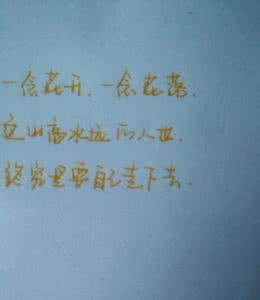 一念花开，一念花落，
这山高水远的人世，
终究是要自己走下去。